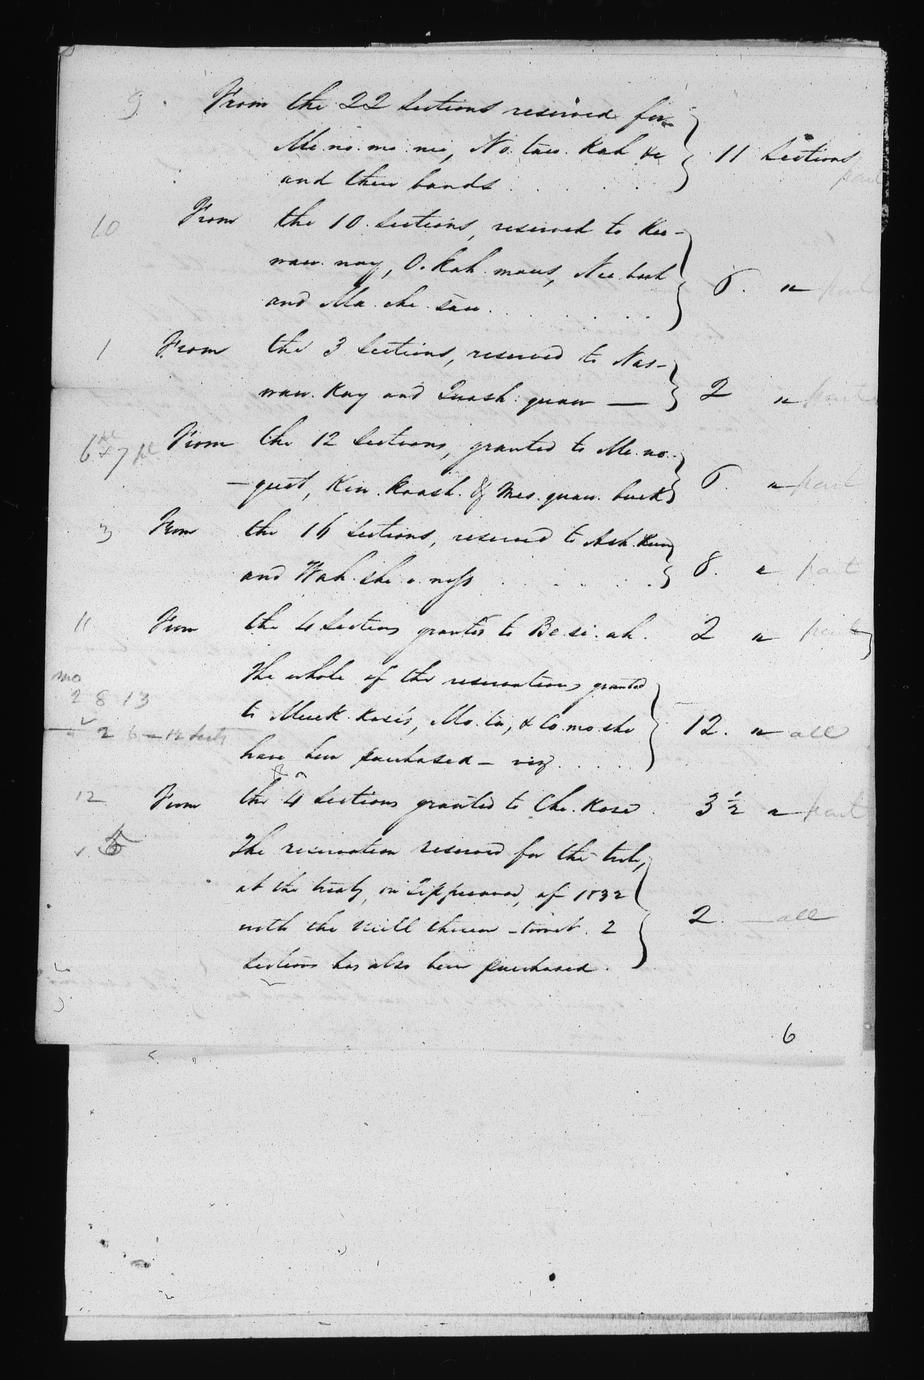 9. From the 22 Sections reserved for
Me. no. mo. nie, No. taw. Kah &c } 11 Sections part
and their bands . . . .
10 From the 10. Sections, reserved to Kee-
waw. nay, O. Kah. maus, Nee. bosh } 6. " part
and Ma. che. saw. . . . .
1 From the 3 Sections, reserved to Nas-
waw. Kay and Quash. quaw — } 2 " part
6 pt & 7 pt From the 12 Sections, granted to Me. no.-
-quet, Kin. Kaash. & Mes. quaw. buck } 6. " part
3 From the 16 Sections, reserved to Ash. Kum
and Wah. she. o. ness . . . . } 8. " part
11 From the 4 Sections granted to Be. si. ah. 2 " part
The whole of the reservations granted
to Muck. Kose's, Mo. ta, & Co. mo. she } 12. " all
2 8 13
2 6 — 12 Sects
have been purchased — viz . . . .
12 From the 4 Sections granted to Che. Kose. 3 ½ " part
5 The reservation reserved for the tribe,
at the treaty, on Tippecanoe, of 1832
with the Mill thereon - 2 } 2. — all
Sections has also been purchased.
6